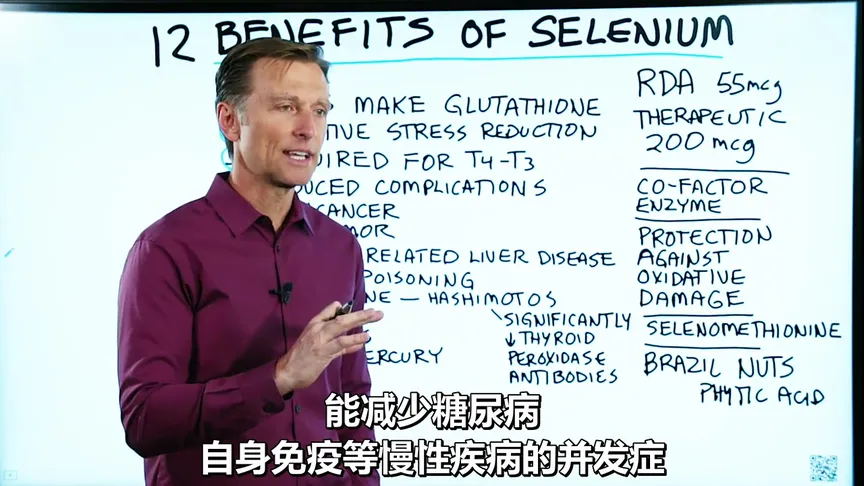 12 BENEFITS OF SELENIUM
MAKE GLUTATHIONE
STRESS REDUCTION
FOR T4-T3
COMPLICATIONS
CANCER
RELATED LIVER DISEASE
POISONING
— HASHIMOTOS
SIGNIFICANTLY
↓ THYROID
PEROXIDASE
ANTIBODIES
RDA 55mcg
THERAPEUTIC
200 mcg
CO-FACTOR
ENZYME
PROTECTION
AGAINST
OXIDATIVE
DAMAGE
SELENOMETHIONINE
BRAZIL NUTS
PHYTIC ACID
能减少糖尿病
自身免疫等慢性疾病的并发症